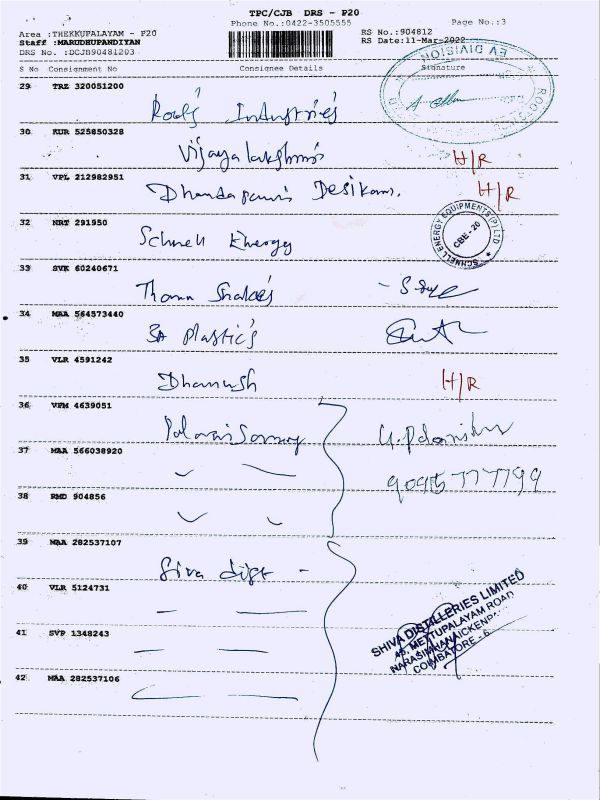 TPC/CJB DRS - P20
Phone No.:0422-3505555
Page No.:3
Area :THEKKUPALAYAM - P20
Staff :MARUDHUPANDIYAN
DRS No. :DCJB90481203
RS No.:904812
RS Date:11-Mar-2022
S No Consignment No Consignee Details Signature
EV DIVISION
29 TRZ 320051200
Roots Industries
30 KUR 525850328
Vijayalakshmi H/R
31 VPL 212982951
Dhandapani Desikan. H/R
32 NRT 291950
Schnell Energy
SCHNELL ENERGY EQUIPMENTS (P) LTD
CBE - 20
33 SVK 60240671
34 MAA 564573440
SA Plastic's
35 VLR 4591242
Dhanush H/R
36 VPM 4639051
37 MAA 566038920
9095777799
38 RMD 904856
39 MAA 282537107
Siva dist -
40 VLR 5124731
SHIVA DISTILLERIES LIMITED
METTUPALAYAM ROAD
COIMBATORE - 6
41 SVP 1348243
42 MAA 282537106